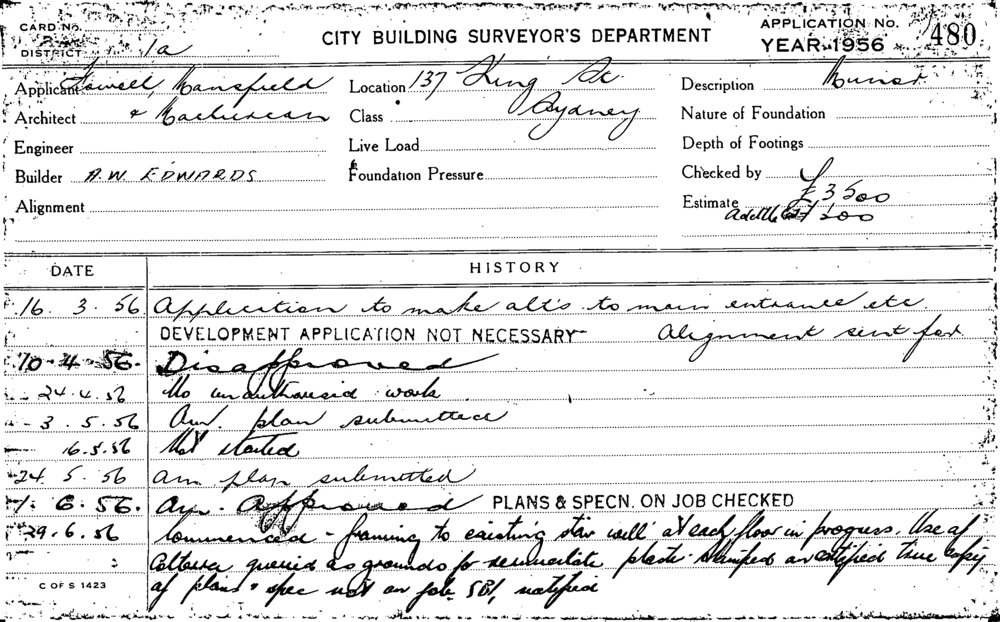 CARD No.
DISTRICT 1a
CITY BUILDING SURVEYOR'S DEPARTMENT
APPLICATION No. 480
YEAR 1956
Applicant Fowell, Mansfield
Architect & Maclurcan
Engineer
Builder A.W. EDWARDS
Alignment
Location 137 King St
Class Sydney
Live Load
Foundation Pressure
Description
Nature of Foundation
Depth of Footings
Checked by
Estimate £3500
200
DATE HISTORY
16. 3. 56 Application to make alt's to main entrance etc.
DEVELOPMENT APPLICATION NOT NECESSARY Alignment sent for
10-4-56. Disapproved
24.4.56 No unauthorised work
3.5.56 Am. plan submitted
16.5.56 Not started
24. 5. 56 am plan submitted
1. 6. 56. Am. Approved PLANS & SPECN. ON JOB CHECKED
29.6.56 Commenced - framing to existing stair well at each floor in progress. Use of
queried as grounds for plaster. Stamped or certified true copy
of plans & spec not on job. notified
C OF S 1423